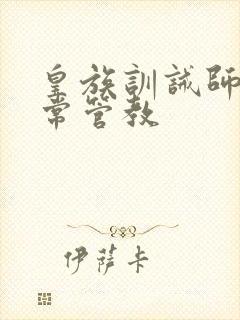 皇族訓誡師
常管教
伊薩卡